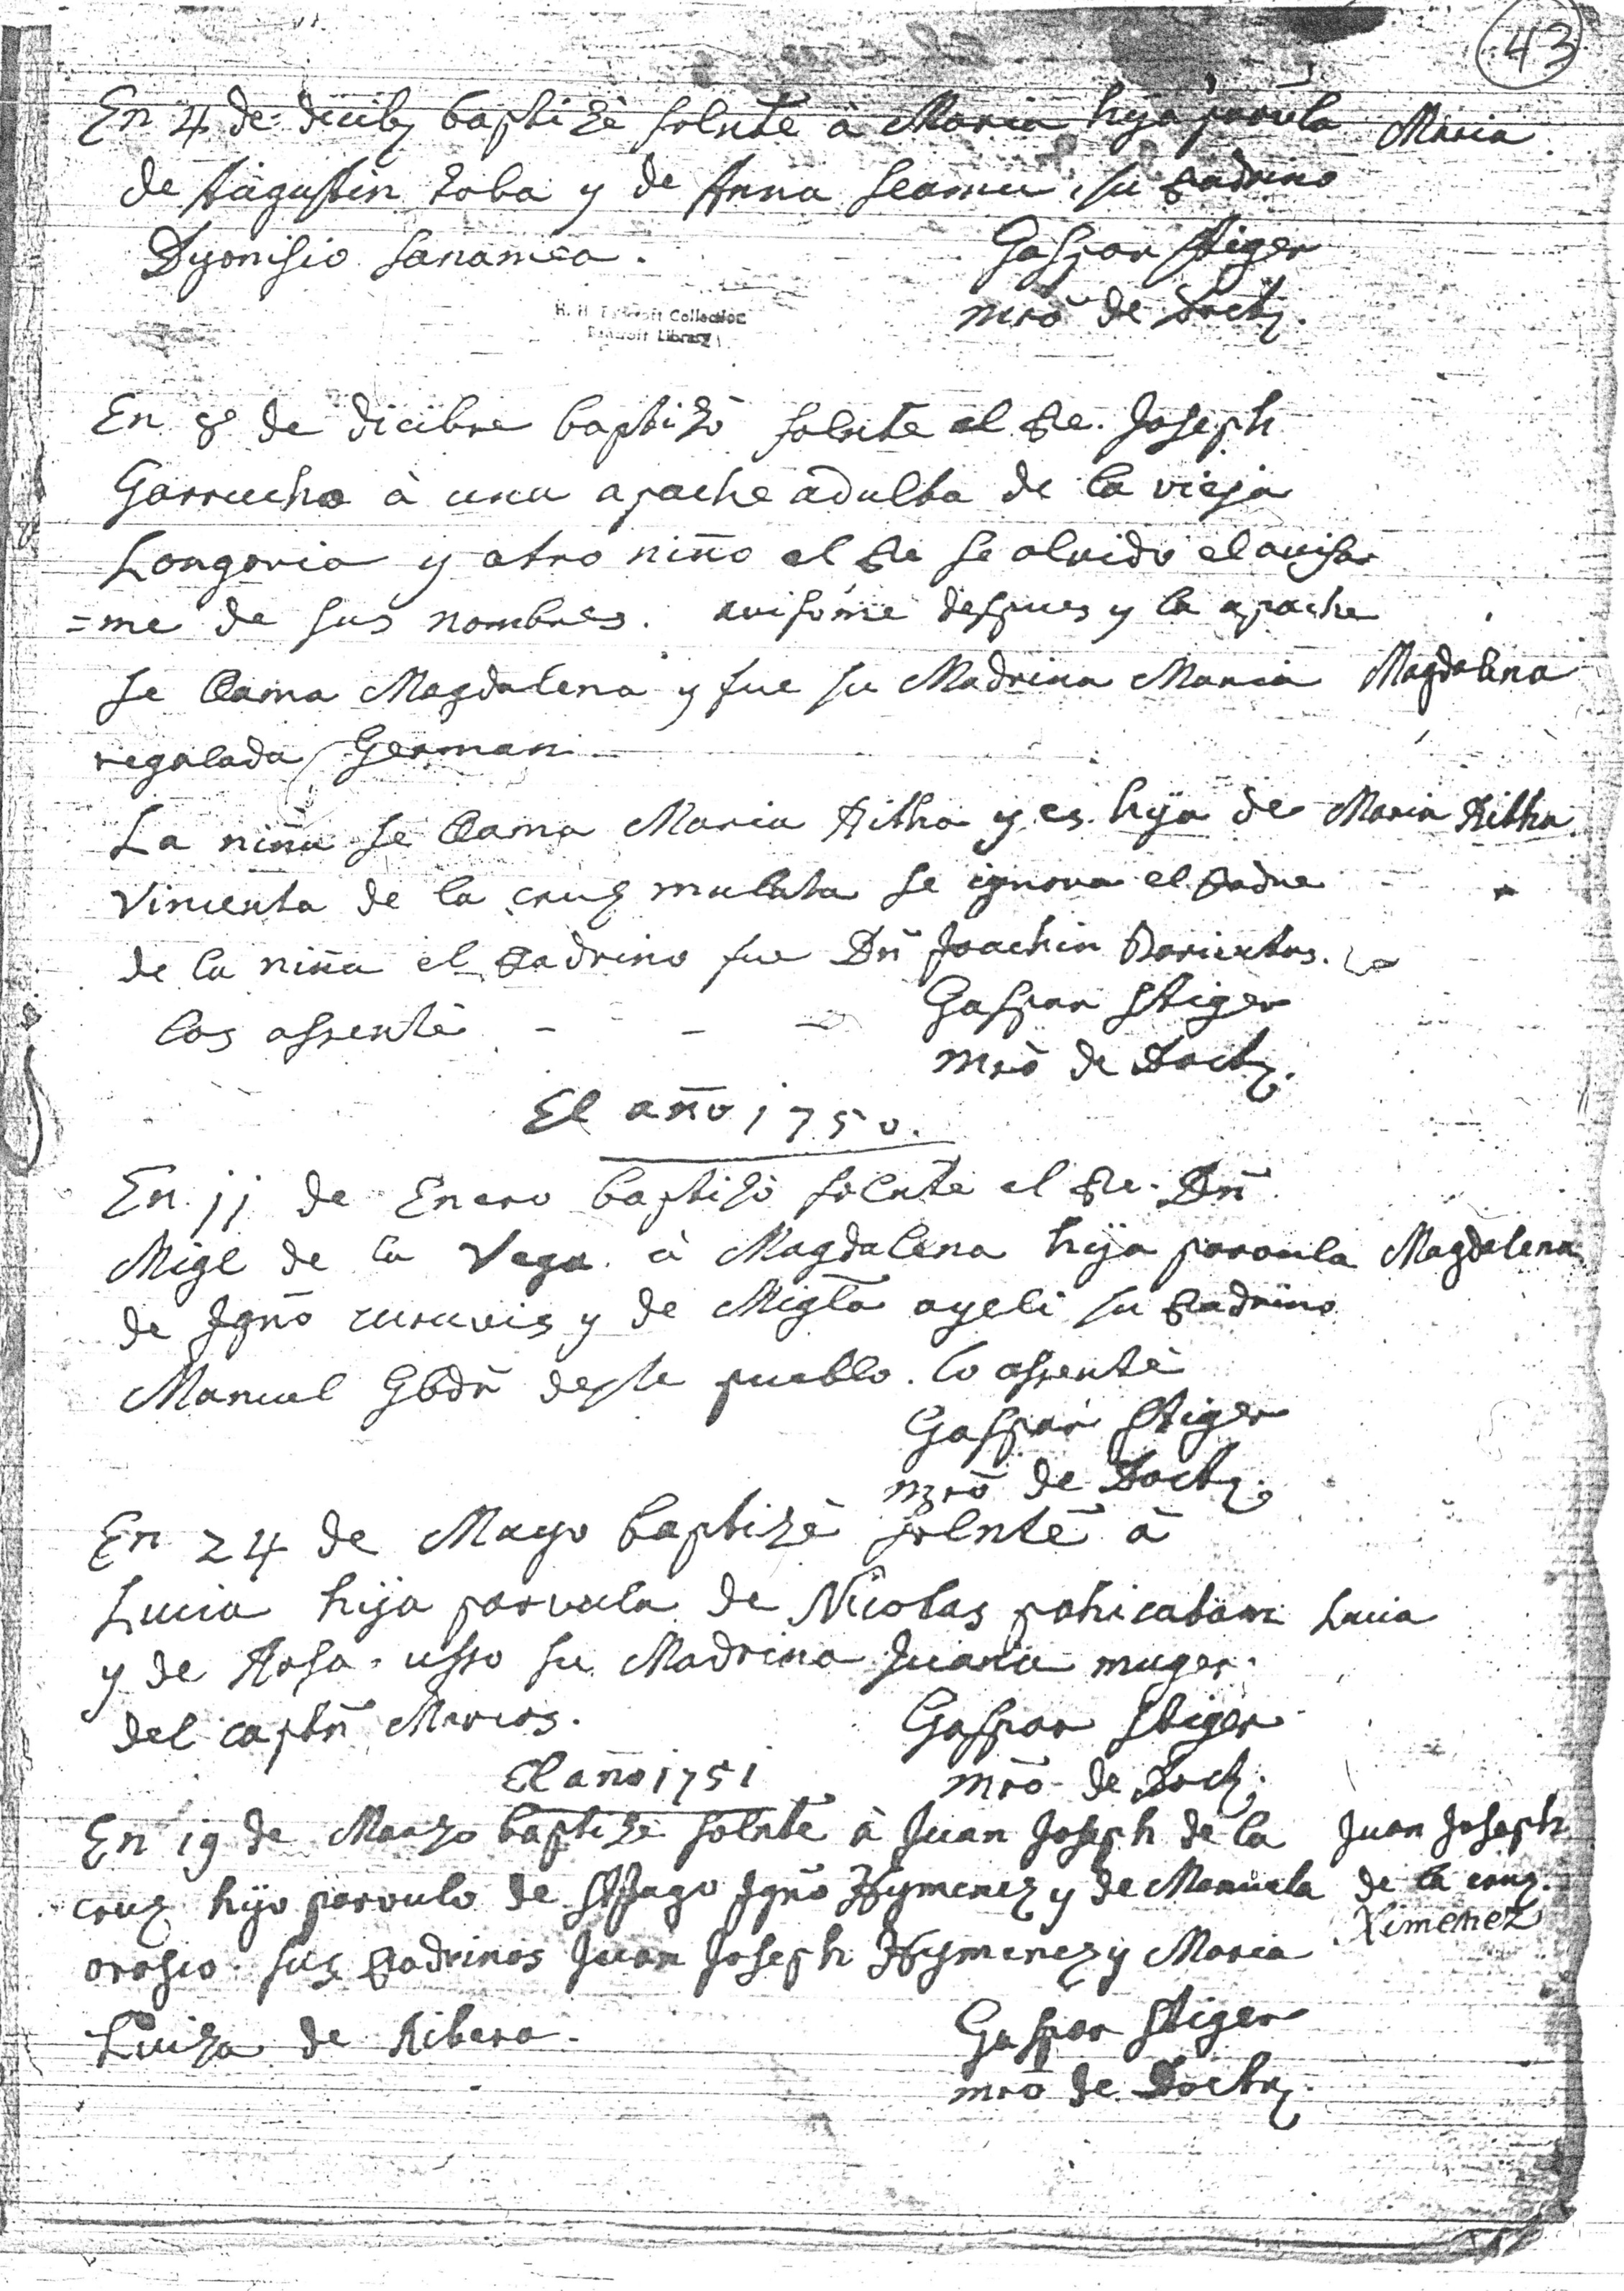 43
En 4 de dicibꝫ baptizè solnte à Maria hija parvula Maria
de Augustin toba y de Anna seamu, su Padrino
Dyonisio sanamea.
Gaspar Stiger
mrõ de Doctꝫ.
H. H. Bancroft Collection
Bancroft Library
En 8 de dicibre baptizò solnte el Pe. Joseph
Garrucho à una apache adulta de la vieja
Longoria y otro niño el Pe se olvido el avisar
=me de sus nombres. avisòme despues y la apache
se llama Magdalena y fue su Madrina Maria Magdalena
regalada German
La niña se llama Maria Ritha y es hija de Maria Ritha
Vincenta de la cruz mulata se ignora el Padre
de la niña el Padrino fue Dñ Joachin Barientos.
los assentè
Gaspar Stiger
mrõ de Doctꝫ.
El año 1750.
En 11 de Enero baptizò solnte el Pe. Dñ
Migl de la Vega à Magdalena hija parvula Magdalena
de Ignõ curuvis y de Miglã ayeli su Padrino
Manuel Gbdr̃ deste pueblo. lo assentè
Gaspar Stiger
mrõ de Doctꝫ.
En 24 de Mayo baptizè solnte à
Lucia hija parvula de Nicolas pahicatam Lucia
y de Rosa usso su Madrina Juana muger
del captñ Marcos.
Gaspar Stiger
El año 1751
mrõ de Doctꝫ.
En 19 de Marzo baptizè solnte à Juan Joseph de la Juan Joseph
cruz hijo parvulo de Stjago Ignõ Hymenez y de Manuela de la cruz.
Ximenez
orosco. sus Padrinos Juan Joseph Hymenez y Maria
Luiza de Ribera.
Gaspar Stiger
mrõ de Doctꝫ.